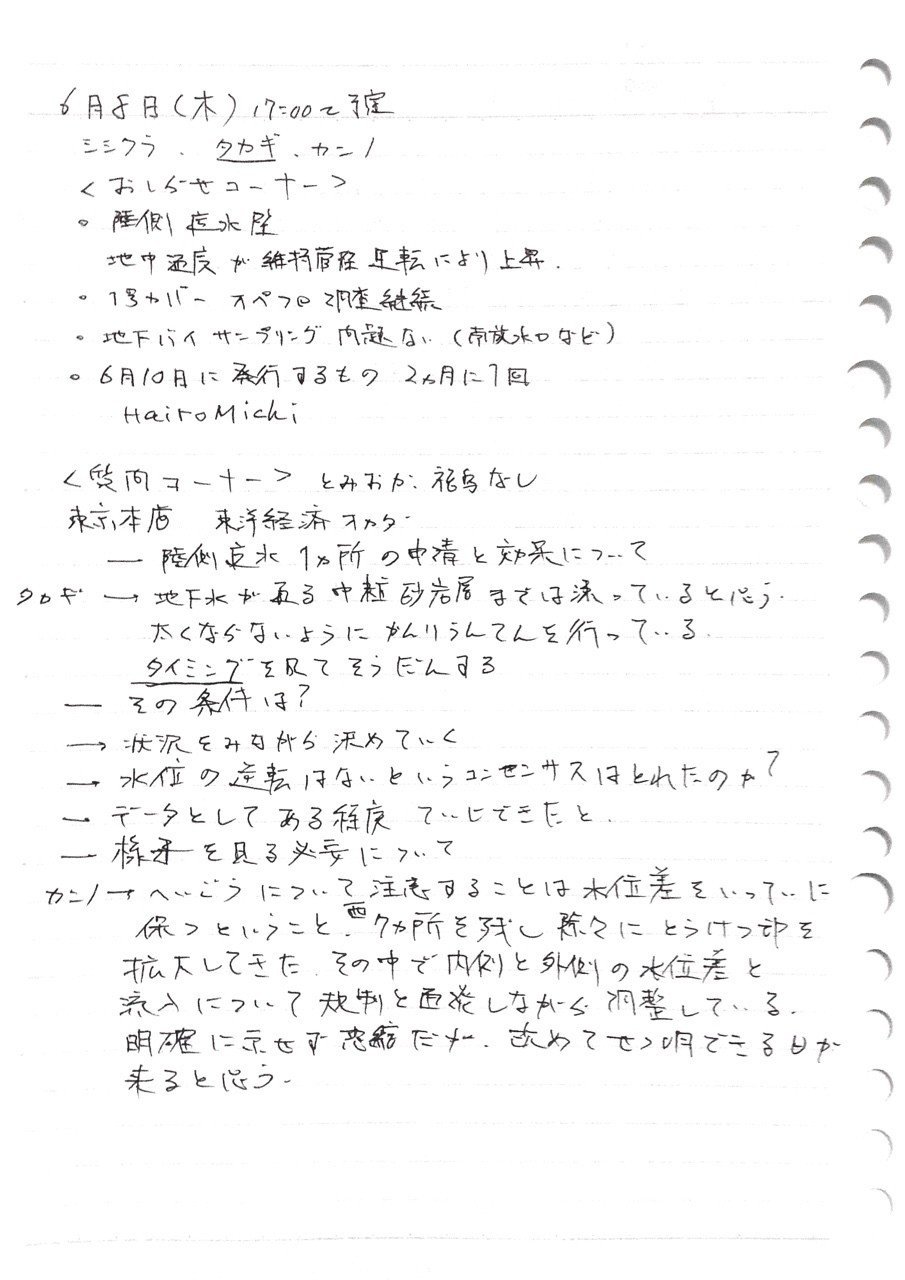 6月8日(木) 17:00〜予定
シシクラ、タカギ、カンノ
<おしらせコーナー>
・陸側遮水壁
地中温度が維持管理運転により上昇.
・1号カバー オペフロ調査継続
・地下バイ サンプリング 問題ない (南放水口など)
・6月10日に発行するもの 2ヵ月に1回
HairoMichi
<質問コーナー> とみおか、福島なし
東京本店 東洋経済オカダ
— 陸側遮水 1ヵ所の申請と効果について
タカギ → 地下水が通る中粒砂岩層までは流っていると思う.
太くならないようにかんりうんてんを行っている.
タイミングを見てそうだんする
— その条件は?
→ 状況をみながら決めていく
→ 水位の逆転はないというコンセンサスはとれたのか?
→ データとしてある程度 ていじできたと
— 様子を見る必要について
カンノ → へいごうについて注意することは水位差をいっていに
保つということ、西7ヵ所を残し除々にとうけつ部を
拡大してきた、その中で内側と外側の水位差と
流入について規制と面談しながら調整している.
明確に示せず恐縮だが、改めてせつ明できる日が
来ると思う.